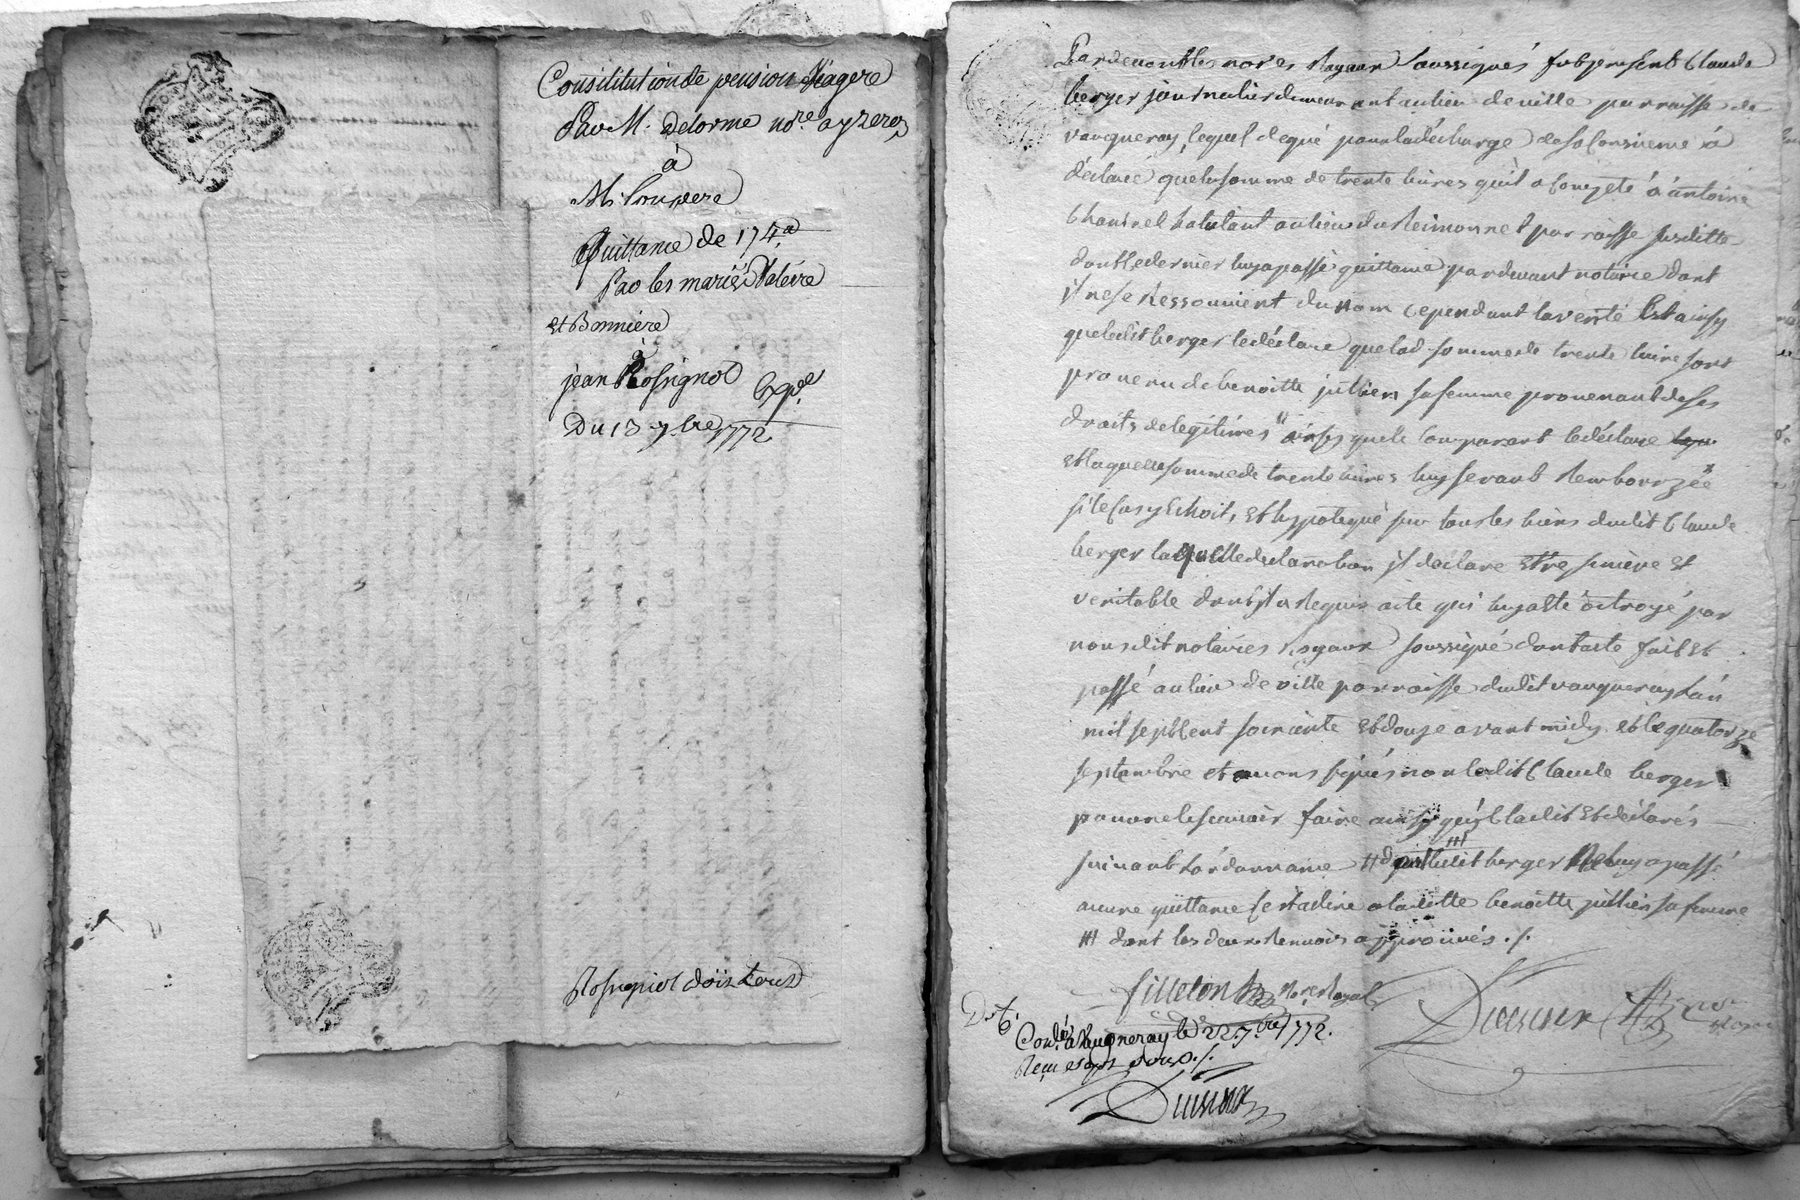 Consititution de pension Viagere
Par M. Delorme no.re a yzeron
à
M. Compere
Quittance de 174#
Par les mariés Valéve
et Bonniere
à
jean Rossignol Exp.é
Du 13 7.bre 1772
Rossigniol doit tout
Pardevant les no.res Royaux soussignés fut present Claude
berger journalier demeurant au lieu de ville parroisse de
vaugneray, lequel de gré pour la décharge de sa Consience á
déclaré que la somme de trente livres qu'il a Compté á antoine
Chantrel habitant au lieu du Reimonnet parroisse susditte
dont le dernier luy a passé quittame par devant notaire dont
jl ne se Ressouvient du nom cependant la verité Est ainsy
que ledit berger le déclare que lad. somme de trente livre sont
provenu de benoitte jullien sa femme provenant de ses
droits de legitimes # ainsy que le Comparant le déclare
Et laquelle somme de trente livres luy seront Rembourzée
si le Cas y Echoit, Et hyppotequé sur tous les biens dudit Claude
berger laquelle declaration jl declare Etre sinsere Et
veritable dont jl a Requis acte qui luy a Eté octroyé par
nousdit notaires Royaux soussigné dont acte fait Et
passé au lieu de ville parroisse dudit vaugneray L'an
mil sept Cent soixante Et douze avant midy et le quatorze
septembre et avons signés non ledit Claude berger
pour ne le scavoir faire ainsy qu'jl la dit Et déclarés
suivant L'ordonnance # dont ledit berger Ne luy a passé
aucune quittame ### à la ditte benoitte jullien sa femme
### dont les deux Renvois approuvés ./.
filleton no.re Royal
Duisieux no.re Royal
D. 6.
Con.lé à Vaugneray le 22. 7.bre 1772.
Reçu sept sous ./.
Duisieux